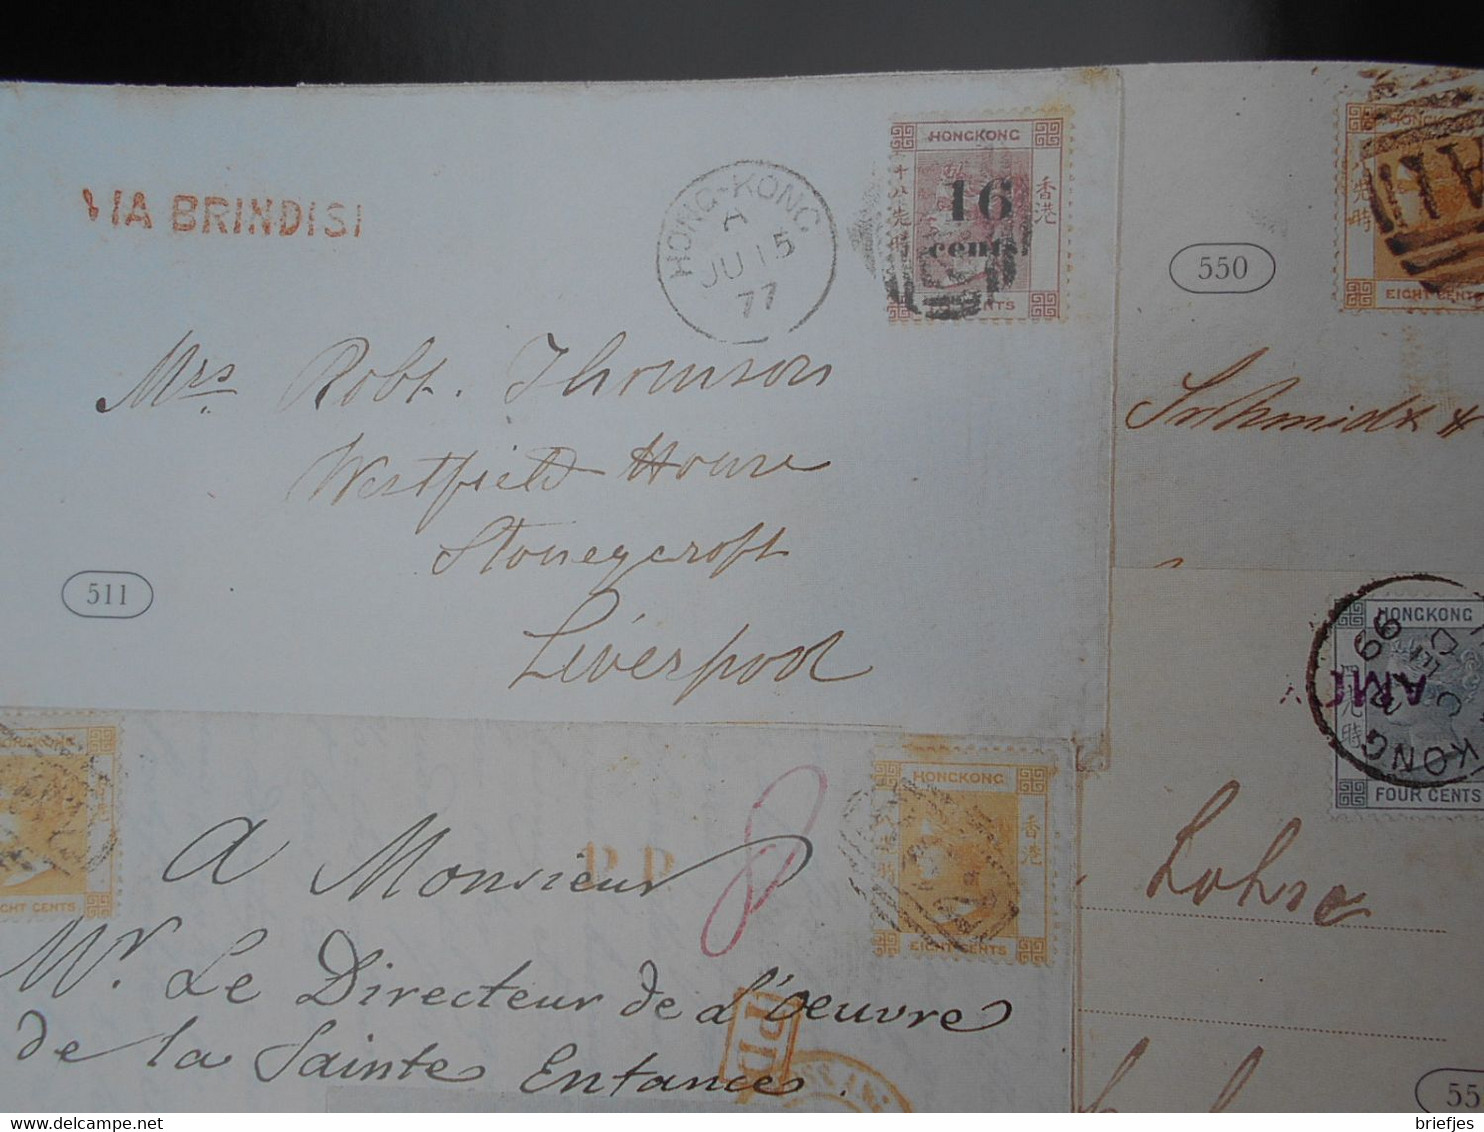 VIA BRINDISI
HONG-KONG
A
JU 15
77
HONGKONG
香港
16
cents.
Mrs Robt. Thomson
Westfield House
Stoneycroft
Liverpool
511
550
HONGKONG
EIGHT CENTS
Schmidt &
HONGKONG
FOUR CENTS
KONG
99
Lohse
EIGHT CENTS
HONGKONG
香港
EIGHT CENTS
P.P.
8
A Monsieur
Mr. Le Directeur de L'oeuvre
de la Sainte Enfance.
PD
55
www.delcampe.net
briefjes